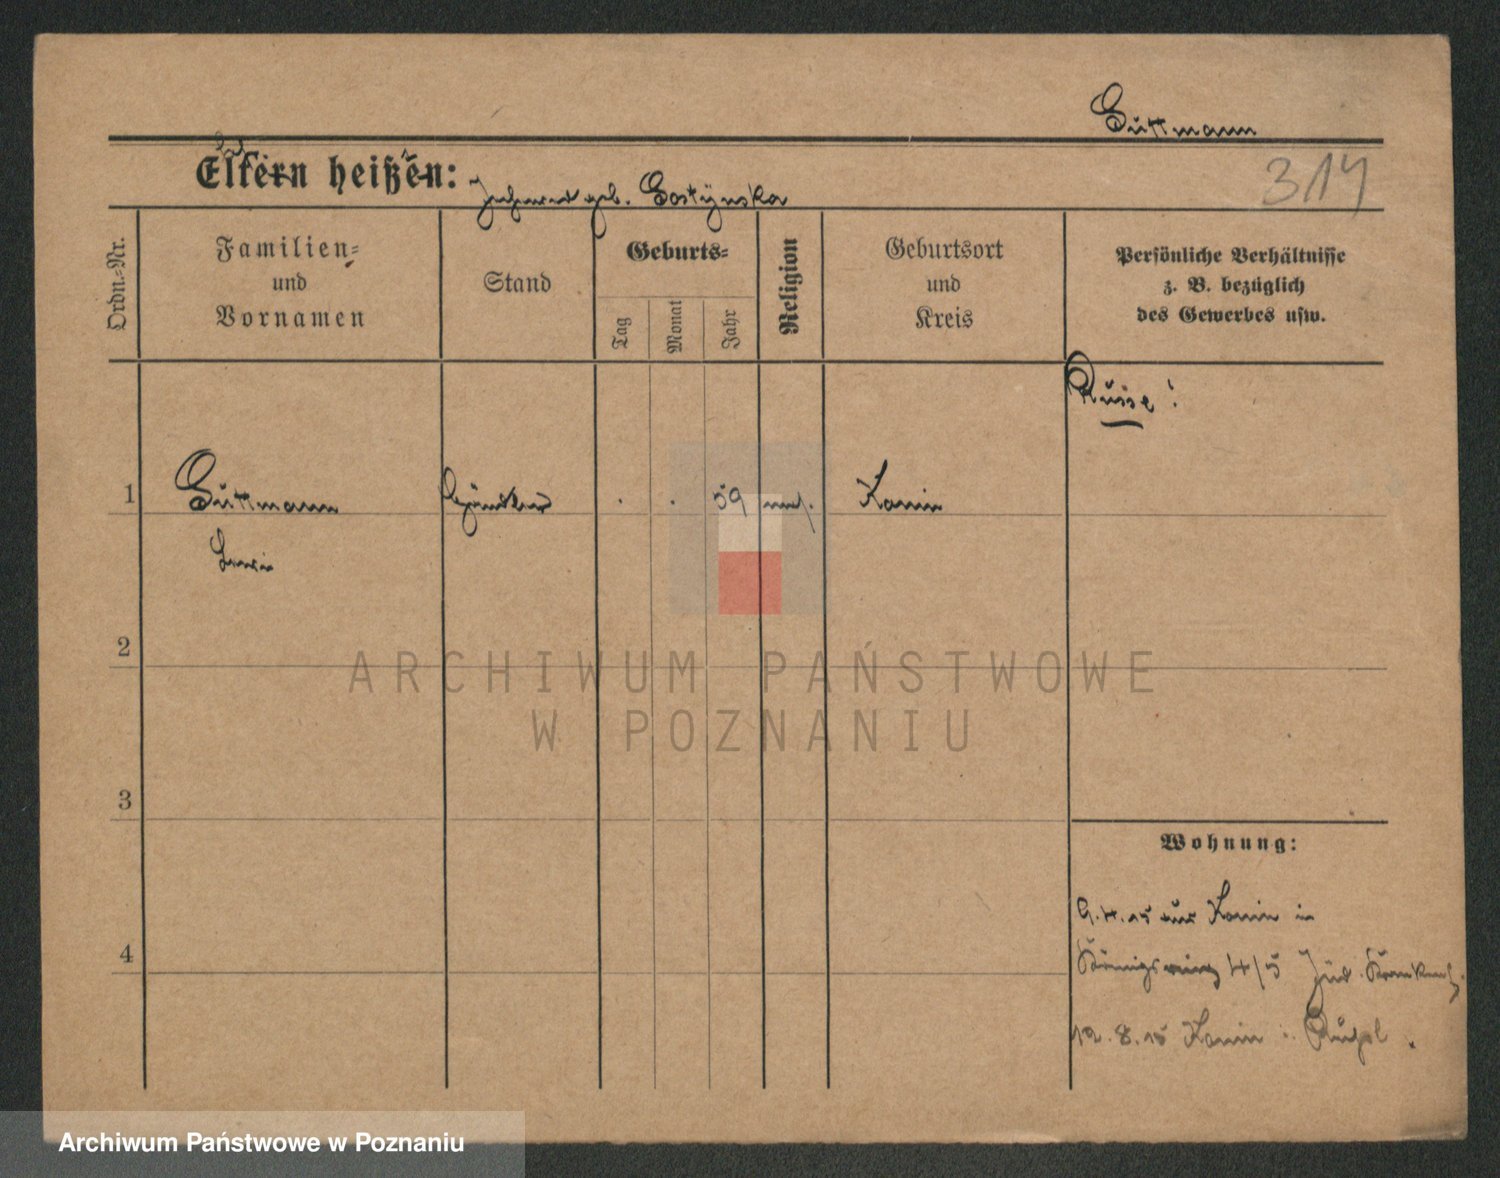 Guttmann
Eltern heißen:
314
geb. Gostynska
Ordn.-Nr.
Familien-
und
Vornamen
Stand
Geburts-
Tag
Monat
Jahr
Religion
Geburtsort
und
Kreis
Persönliche Verhältnisse
z. B. bezüglich
des Gewerbes usw.
Russe!
1
Guttmann
Händler
. . 59 mos.
Konin
Lewin
2
3
4
Wohnung:
9.4.15 aus Konin in
Königsring 4/5 Jüd. Krankenh.
12.8.15 Konin
ARCHIWUM PAŃSTWOWE
W POZNANIU
Archiwum Państwowe w Poznaniu